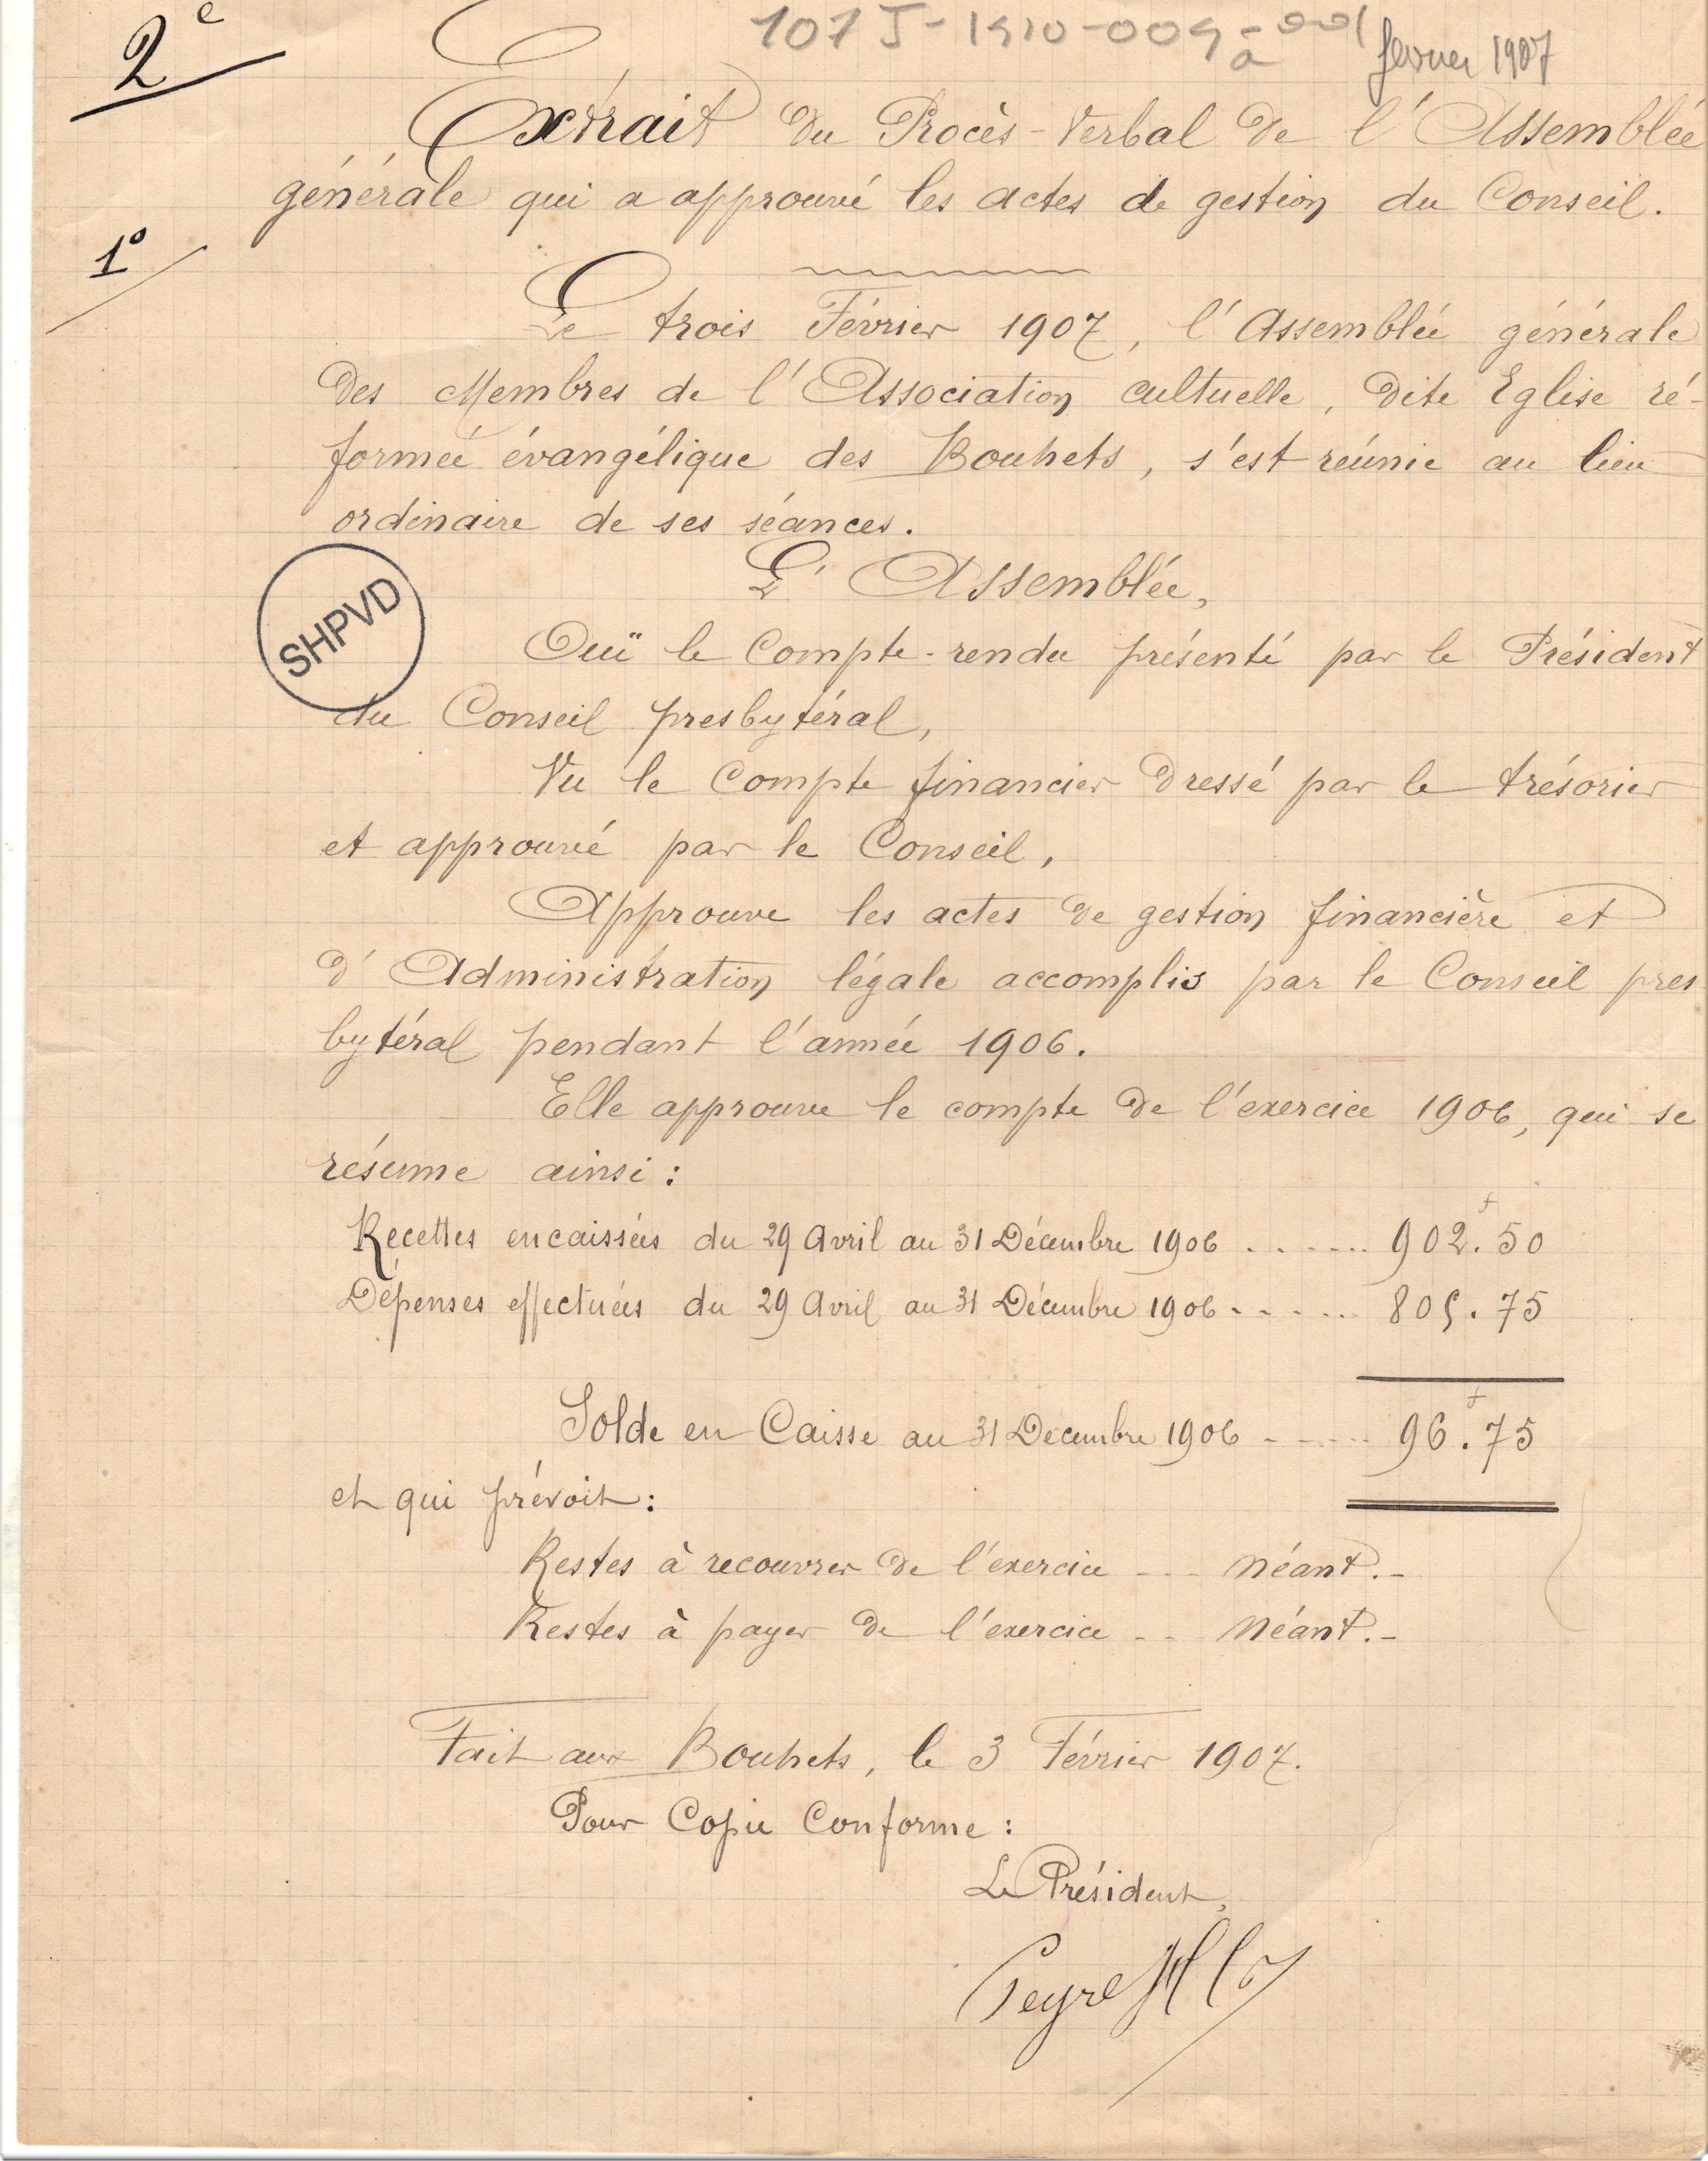 2e
107 J-1910-009-001
à
février 1907
Extrait du Procès-Verbal de l'Assemblée
générale qui a approuvé les actes de gestion du Conseil.
1º
Le trois Février 1907, l'Assemblée générale
des Membres de l'Association cultuelle, dite Eglise ré-
formée évangélique des Bouhets, s'est réunie au lieu
ordinaire de ses séances.
L'Assemblée,
SHPVD
Ouï le Compte-rendu présenté par le Président
du Conseil presbytéral,
Vu le Compte financier dressé par le trésorier
et approuvé par le Conseil,
Approuve les actes de gestion financière et
d'Administration légale accomplis par le Conseil pres
bytéral pendant l'année 1906.
Elle approuve le compte de l'exercice 1906, qui se
résume ainsi :
Recettes encaissées du 29 Avril au 31 Décembre 1906 ...... 902f.50
Dépenses effectuées du 29 Avril au 31 Décembre 1906 ...... 805.75
Solde en Caisse au 31 Décembre 1906 ...... 96f.75
et qui prévoit :
Restes à recouvrer de l'exercice --- Néant.-
Restes à payer de l'exercice -- Néant.-
Fait aux Bouhets, le 3 Février 1907.
Pour Copie Conforme :
Le Président,
Peyre